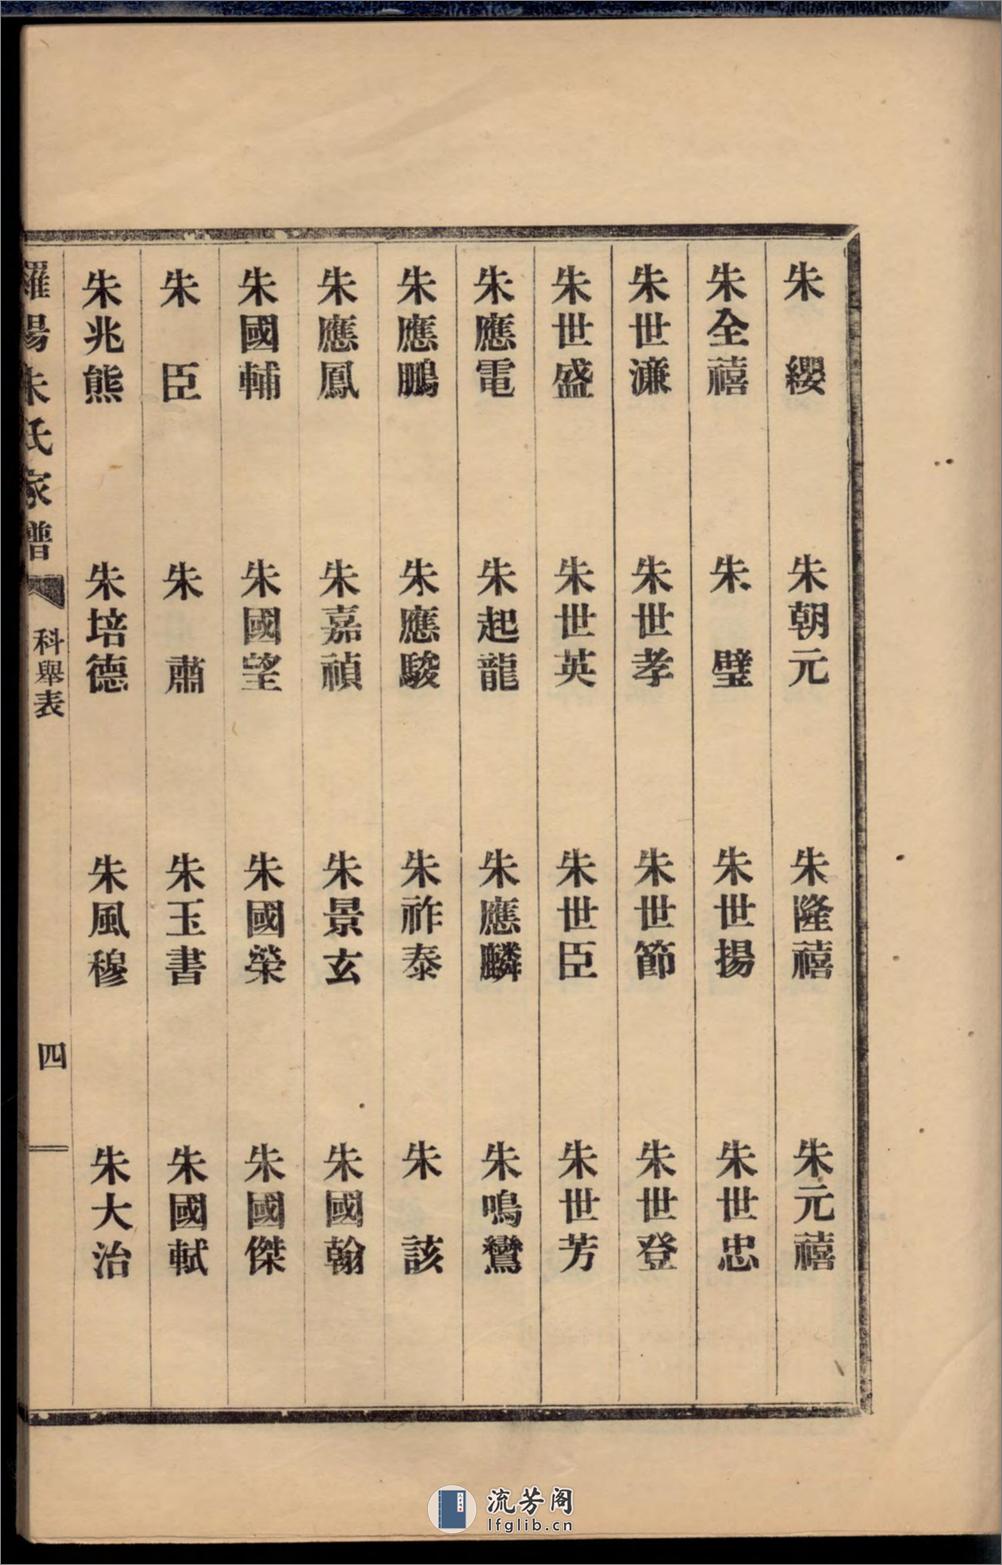 朱纓 朱朝元 朱隆禧 朱元禧
朱全禧 朱璧 朱世揚 朱世忠
朱世濂 朱世孝 朱世節 朱世登
朱世盛 朱世英 朱世臣 朱世芳
朱應電 朱起龍 朱應麟 朱鳴鸞
朱應鵬 朱應駿 朱祚泰 朱該
朱應鳳 朱嘉禎 朱景玄 朱國翰
朱國輔 朱國望 朱國榮 朱國傑
朱臣 朱肅 朱玉書 朱國軾
朱兆熊 朱培德 朱風穆 朱大治
羅陽朱氏家譜 科舉表 四
流芳阁
lfglib.cn